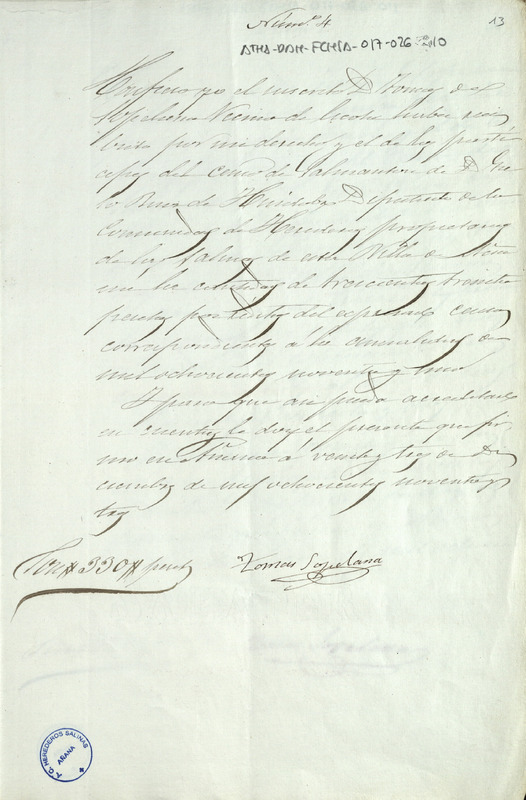 Núm.º 4
13
ATHA-DAH-FCHSA-017-026-10
Confieso yo el inscrito D. Tomas de
Sopelana Vecino de haber reci
bido por mi derecho y el de los partí
cipes del censo de Salmanton de D.
Depositario de la
Comunidad de Herederos propietarios
de las Salinas de esta Villa de Aña
na la cantidad de trescientas treinta
pesetas por renta del espresado censo
correspondiente á la anualidad de
mil ochocientos noventa y uno
Y para que asi pueda acreditarlo
en cuentas le doy el presente que fir
mo en Añana á veinte y tres de Di
ciembre de mil ochocientos noventa y
tres
Son # 330 # peset
Tomas Sopelana
T. C. HEREDEROS SALINAS
AÑANA